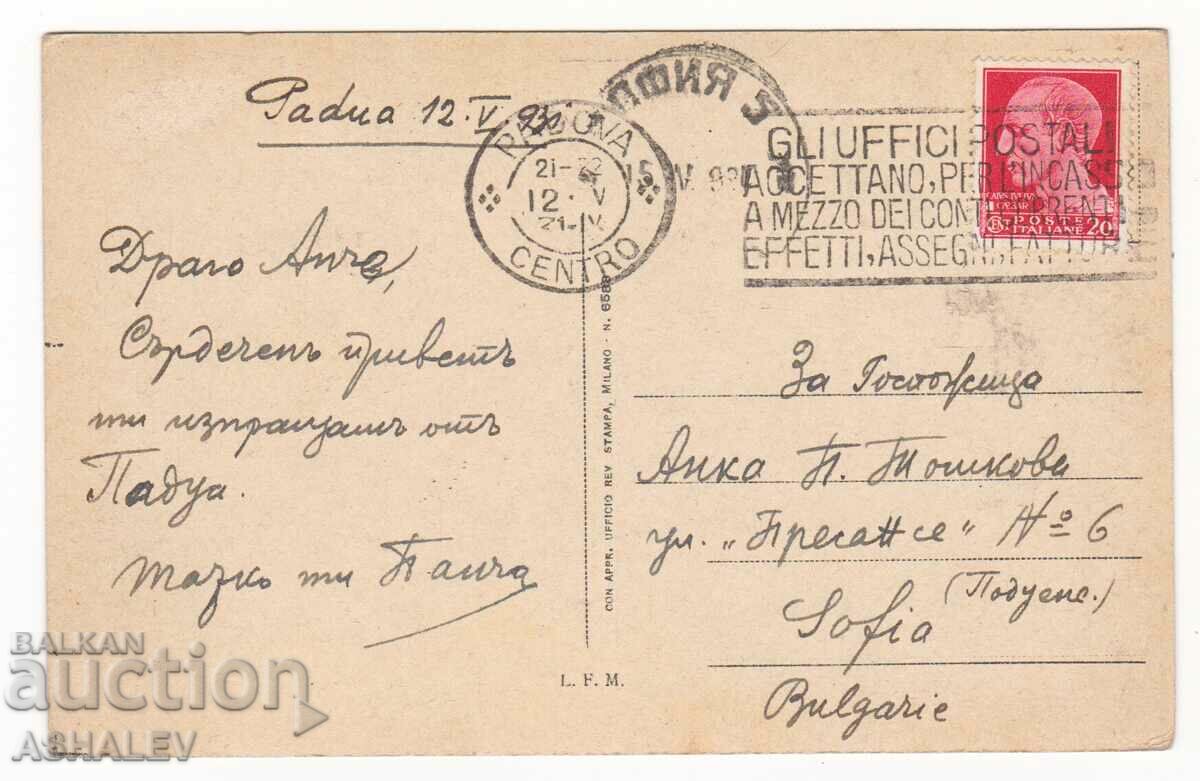 Padua 12.V.
Драго Анче,
Сърдеченъ приветъ
ти изпращамъ отъ
Падуа.
PADOVA
21-22
12 V
CENTRO
СОФИЯ 5
GLI UFFICI POSTALI
ACCETTANO, PER L'INCASSO
A MEZZO DEI CONTI CORRENTI
EFFETTI, ASSEGNI, FATTURE
POSTE
ITALIANE
20
CON APPR. UFFICIO REV STAMPA, MILANO - N. 6589
L. F. M.
За Госпожица
Анка П. Тошкова
ул. „Пресансе" № 6
(Подуене.)
Sofia
Bulgarie
BALKAN
auction
ASHALEV